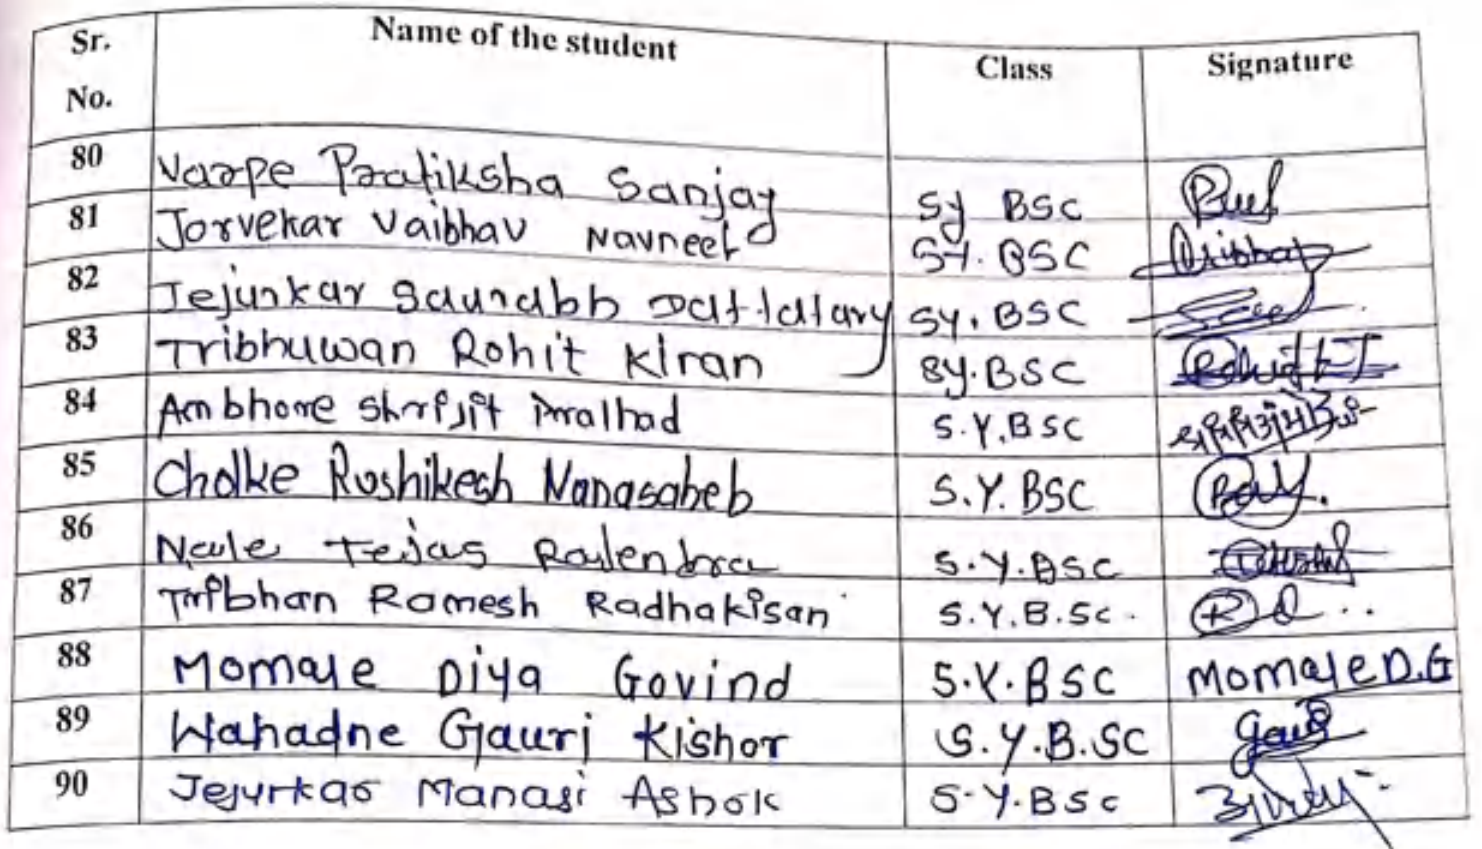 Sr. No. Name of the student Class Signature
80 Varpe Pratiksha Sanjay Sy BSC
81 Jorvekar Vaibhav Navneet SY. BSC
82 Jejurkar Saurabh Dattatary SY. BSC
83 Tribhuwan Rohit Kiran SY. BSC
84 Ambhore Pralhad S.Y.BSC
85 Cholke Rushikesh Nanasaheb S.Y. BSC
86 Nale Tejas Rajendra S.Y.BSC
87 Tribhan Ramesh Radhakisan S.Y.B.Sc.
88 Momale Diya Govind S.Y.BSC Momale D.G
89 Wahadne Gauri Kishor S.Y.B.SC Gauri
90 Jejurkar Manasi Ashok S.Y.BSc